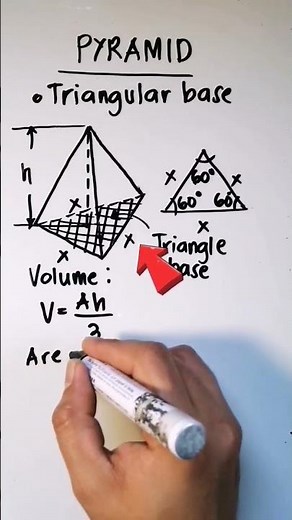 PYRAMID
• Triangular base
h
x
x
x
x
x
x
60°
60°
60°
Triangle
base
Volume :
V = Ah
3
Are